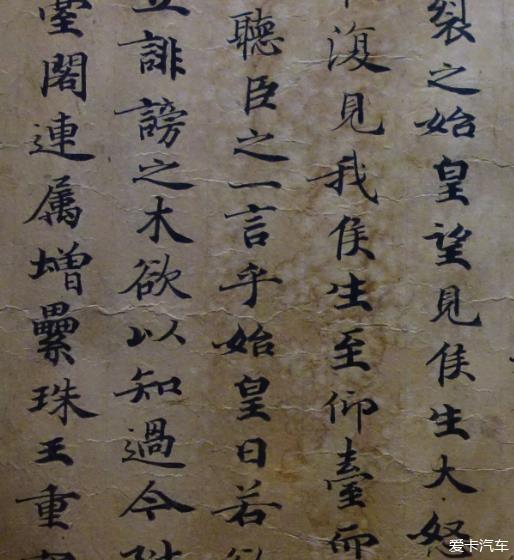 裂之始皇望見侯生大怒
復見我侯生至仰臺而
聽臣之一言乎始皇曰若欲
立誹謗之木欲以知過今陛
臺閣連属增壘珠玉重
爱卡汽车